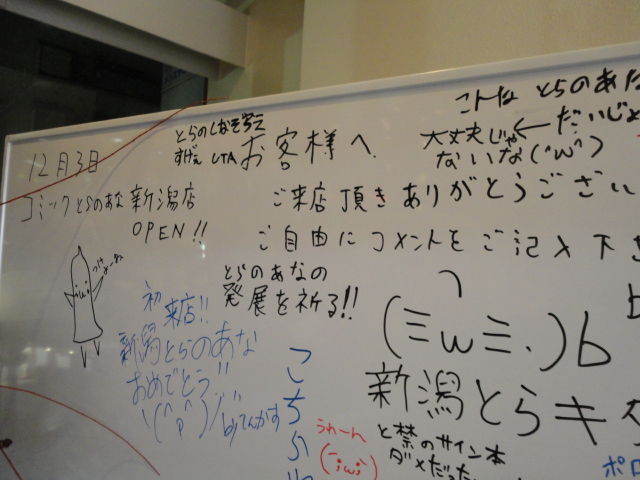 12月3日
コミックとらのあな 新潟店
OPEN!!
すげぇ
お客様へ
こんな とらのあな
大丈夫じゃ
ないな(´w`)
ご来店頂きありがとうござい
ご自由にコメントをご記入下さ
とらのあなの
発展を祈る!!
初来店!!
新潟とらのあな
おめでとう!!
\(^p^)/
by てんかす
こちら
(三w三.)b
新潟とらキ
うわーん
(;w;)
と禁のサイン本
ダメだった
ポロ